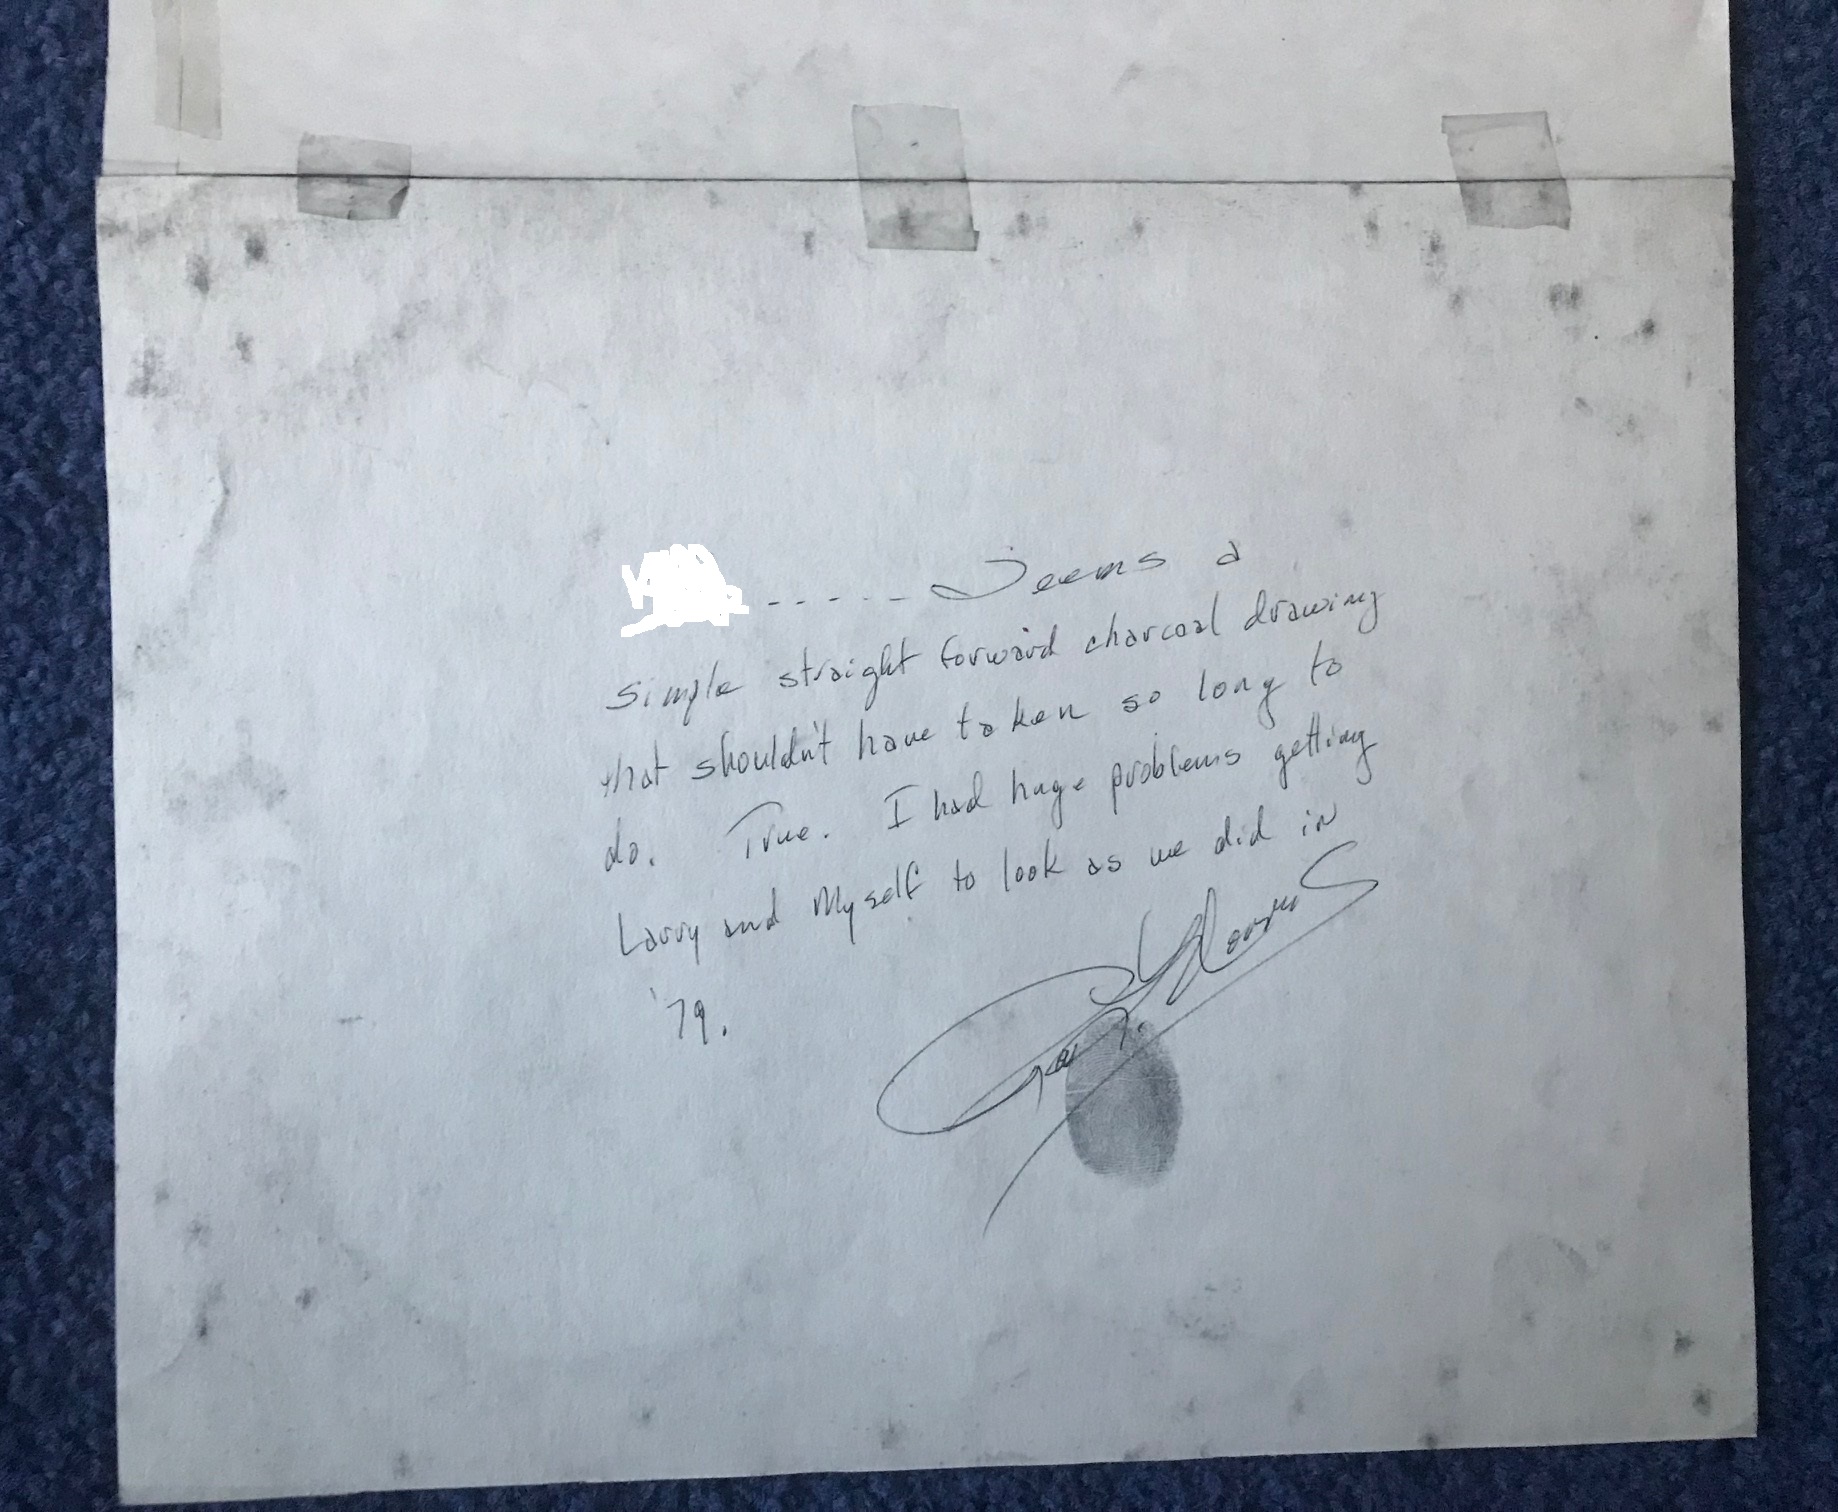 ----- Seems a
simple straight forward charcoal drawing
that shouldn't have taken so long to
do. True. I had huge problems getting
Larry and Myself to look as we did in
'79.